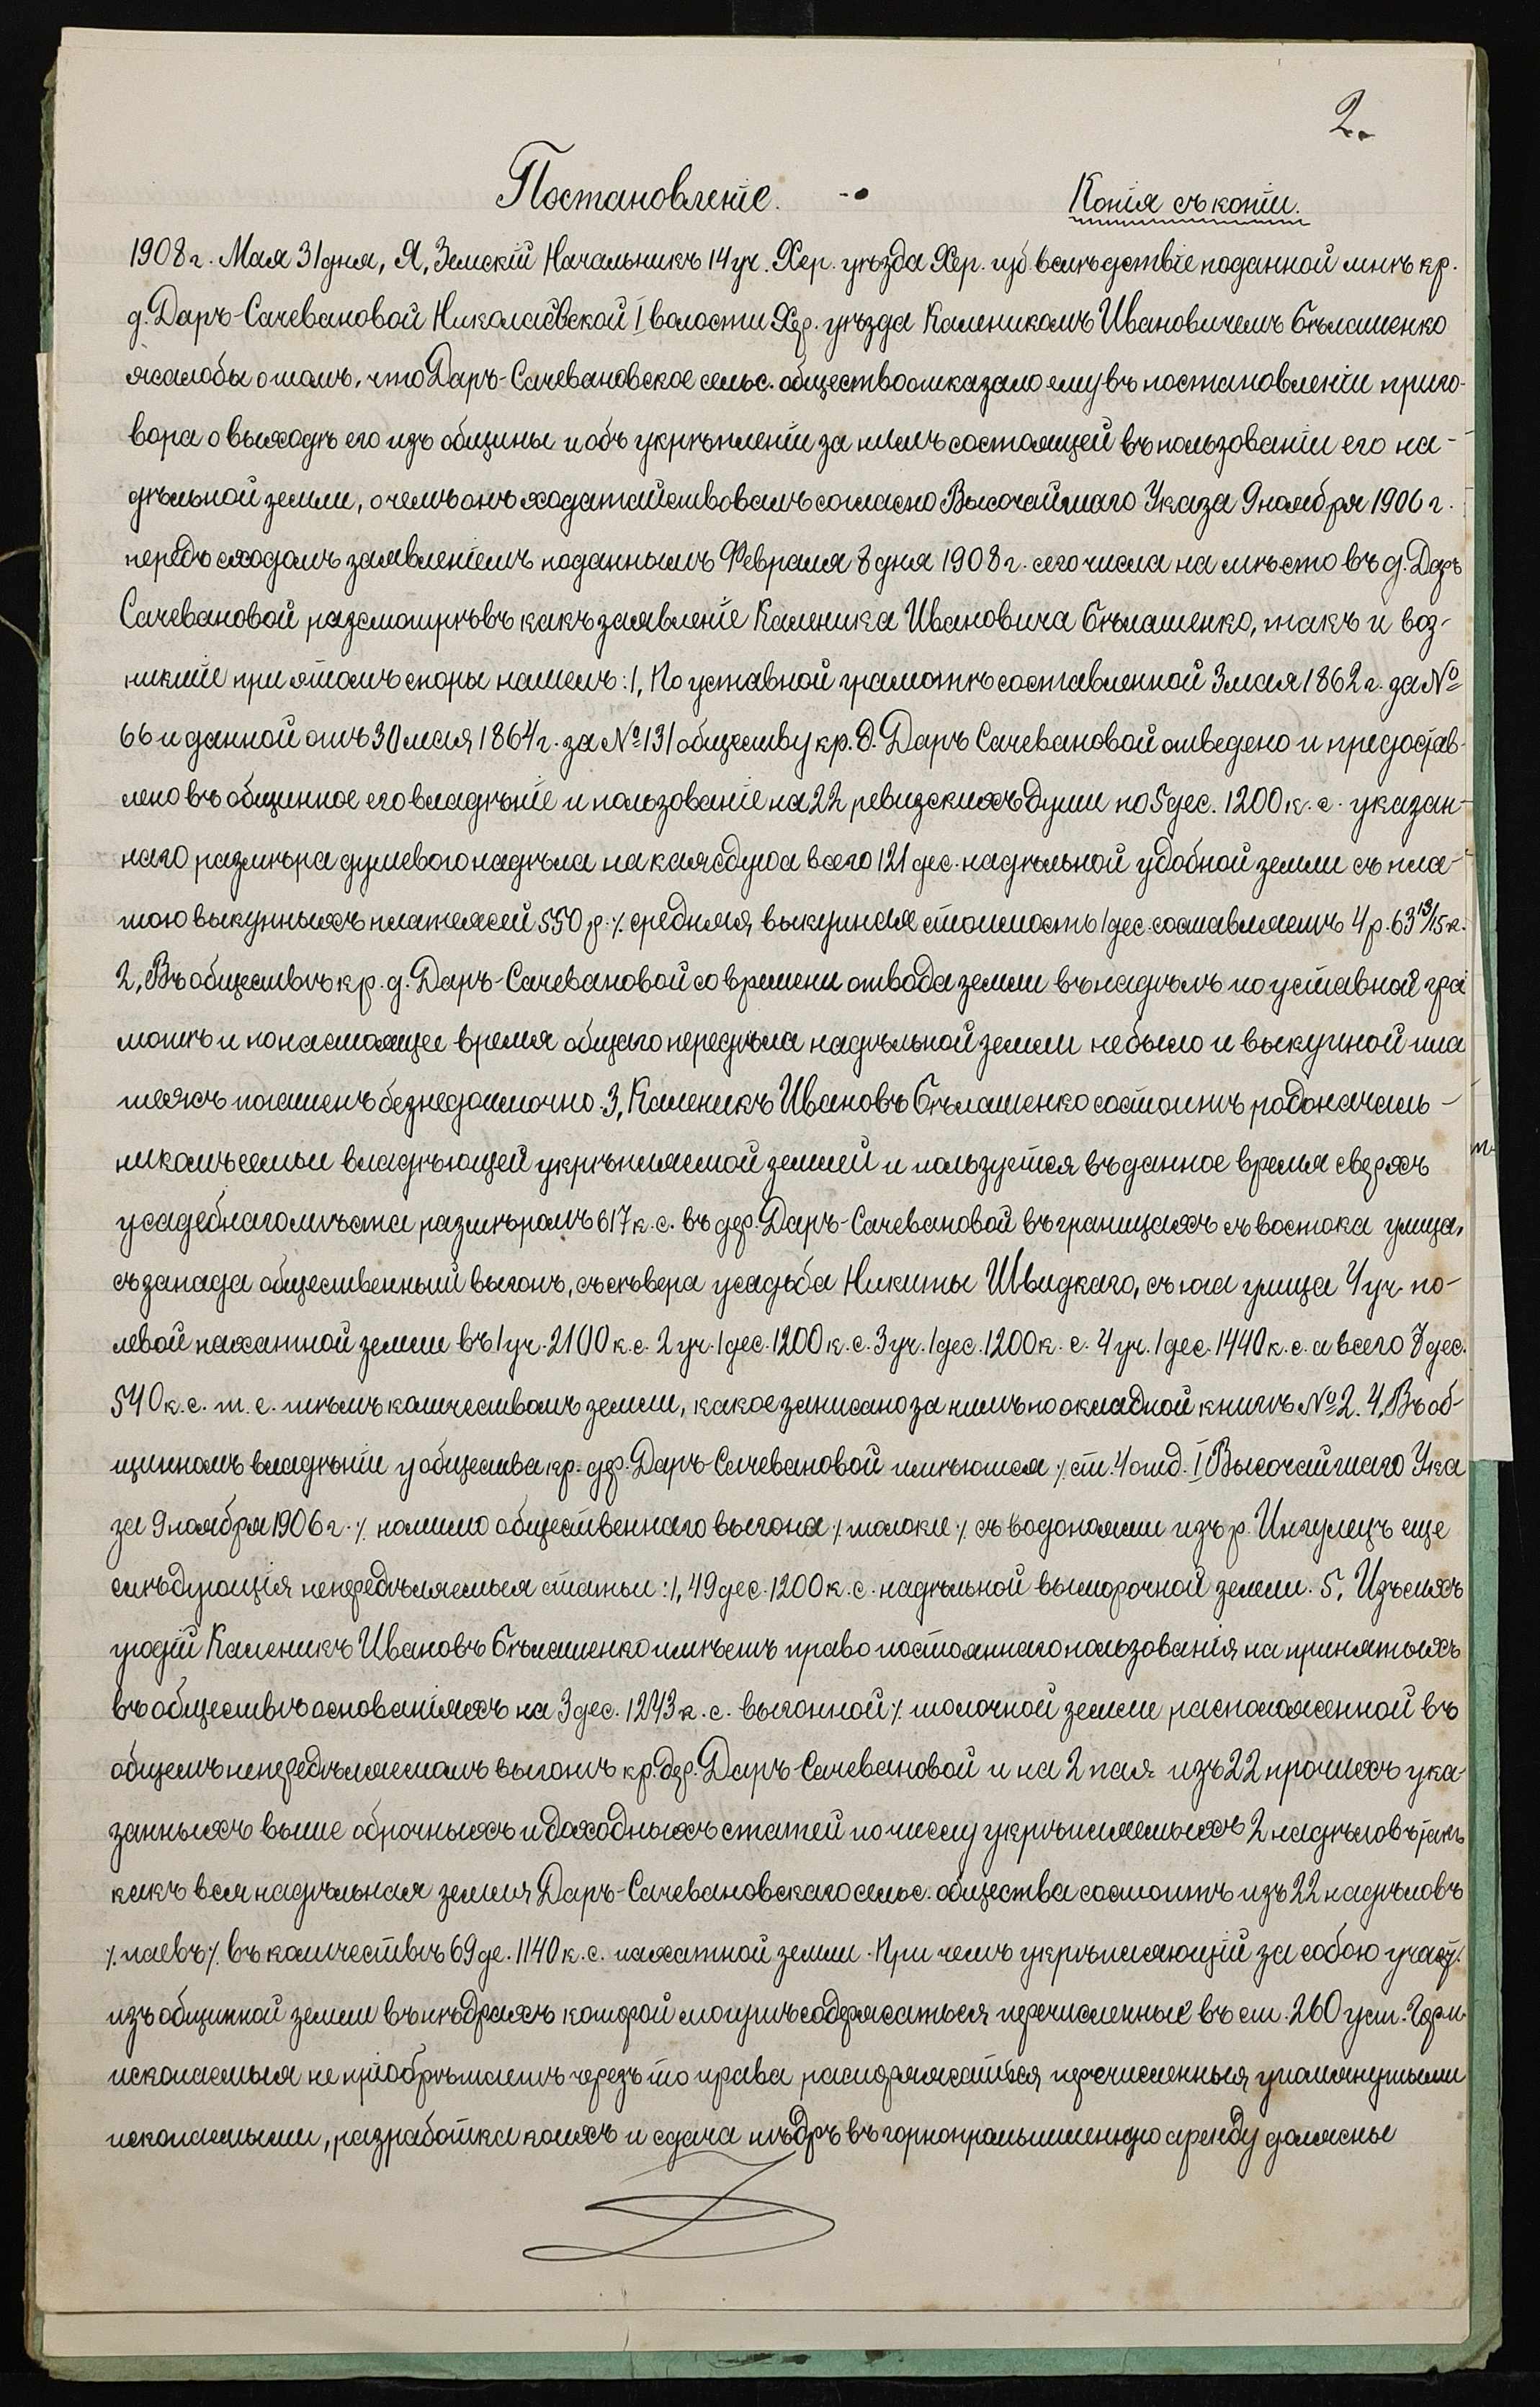 2.
Постановленіе. Копія съ копіи.
1908 г. Мая 31 дня, Я, Земскій Начальникъ 14 уч. Хер. уѣзда Хер. губ. вслѣдствіе поданной мнѣ кр.
д. Даръ-Сачевановой Николаевской I волости Хер. уѣзда Калеником Ивановичемъ Бѣлашенко
жалобы о томъ, что Даръ-Сачевановское сельс. общество отказало ему въ постановленіи приго-
вора о выходѣ его изъ общины и объ укрѣпленіи за нимъ состоящей въ пользованіи его на-
дѣльной земли, о чемъ онъ ходатайствовалъ согласно Высочайшаго Указа 9 ноября 1906 г.
передъ сходомъ заявленіемъ поданнымъ Февраля 8 дня 1908 г. сего числа на мѣсто въ д. Даръ
Сачевановой разсмотрѣвъ какъ заявленіе Каленика Ивановича Бѣлашенко, такъ и воз-
никшіе при этомъ споры нашелъ: 1, По уставной грамотѣ составленной 3 мая 1862 г. за №
66 и данной отъ 30 мая 1864 г. за № 131 обществу кр. д. Даръ Сачевановой отведено и предостав-
лено въ общинное его владѣніе и пользованіе на 22 ревизскихъ души по 5 дес. 1200 к. с. указан-
наго размѣра душевого надѣла на каждую а всего 121 дес. надѣльной удобной земли съ пла-
тою выкупныхъ платежей 550 р. ./. средняя выкупная стоимость 1 дес. составляетъ 4 р. 63 13/15 к.
2, Въ обществѣ кр. д. Даръ-Сачевановой со времени отвода земли въ надѣлъ по уставной гра
мотѣ и по настоящее время общаго передѣла надѣльной земли не было и выкупной пла
тежъ погашенъ безнедоимочно. 3, Каленикъ Ивановъ Бѣлашенко состоитъ родоначаль-
никомъ семьи владѣющей укрѣпляемой землей и пользуется въ данное время сверхъ
усадебнаго мѣста размѣромъ 617 к. с. въ дер. Даръ-Сачевановой въ границахъ съ востока улица,
съ запада общественный выгонъ, съ сѣвера усадьба Никиты Швидкаго, съ юга улица 4 уч. по-
левой пахатной земли въ 1 уч. 2100 к. с. 2 уч. 1 дес. 1200 к. с. 3 уч. 1 дес. 1200 к. с. 4 уч. 1 дес. 1440 к. с. а всего 7 дес.
540 к. с. т. е. тѣмъ количествомъ земли, какое записано за нимъ по окладной книгѣ № 2. 4, Въ об-
щинномъ владѣніи у общества кр. дер. Даръ-Сачевановой имѣются ./. ст. 4 отд. I Высочайшаго Ука
за 9 ноября 1906 г. ./. помимо общественнаго выгона ./. толоки ./. съ водопоями изъ р. Ингулецъ еще
слѣдующія непередѣляемыя статьи: 1, 49 дес. 1200 к. с. надѣльной выморочной земли. 5, Изъ сихъ
угодій Каленикъ Ивановъ Бѣлашенко имѣетъ право постояннаго пользованія на принятыхъ
въ обществѣ основаніяхъ на 3 дес. 1243 к. с. выгонной ./. толочной земли расположенной въ
общемъ непередѣляемомъ выгонѣ кр. дер. Даръ-Сачевановой и на 2 пая изъ 22 прочихъ ука-
занныхъ выше оброчныхъ и доходныхъ статей по числу укрѣпляемыхъ 2 надѣловъ такъ
какъ вся надѣльная земля Даръ-Сачевановскаго сельс. общества состоитъ изъ 22 надѣловъ
./. паевъ ./. въ количествѣ 69 де. 1140 к. с. пахатной земли. При чемъ укрѣпляющій за собою участ.
изъ общинной земли въ нѣдрахъ которой могутъ содержаться перечисленные въ ст. 260 уст. Горн.
ископаемыя не пріобрѣтаетъ черезъ то права распоряжаться перечисленныя упомянутыми
ископаемыми, разработка коихъ и сдача нѣдръ въ горнопромышленную аренду должны